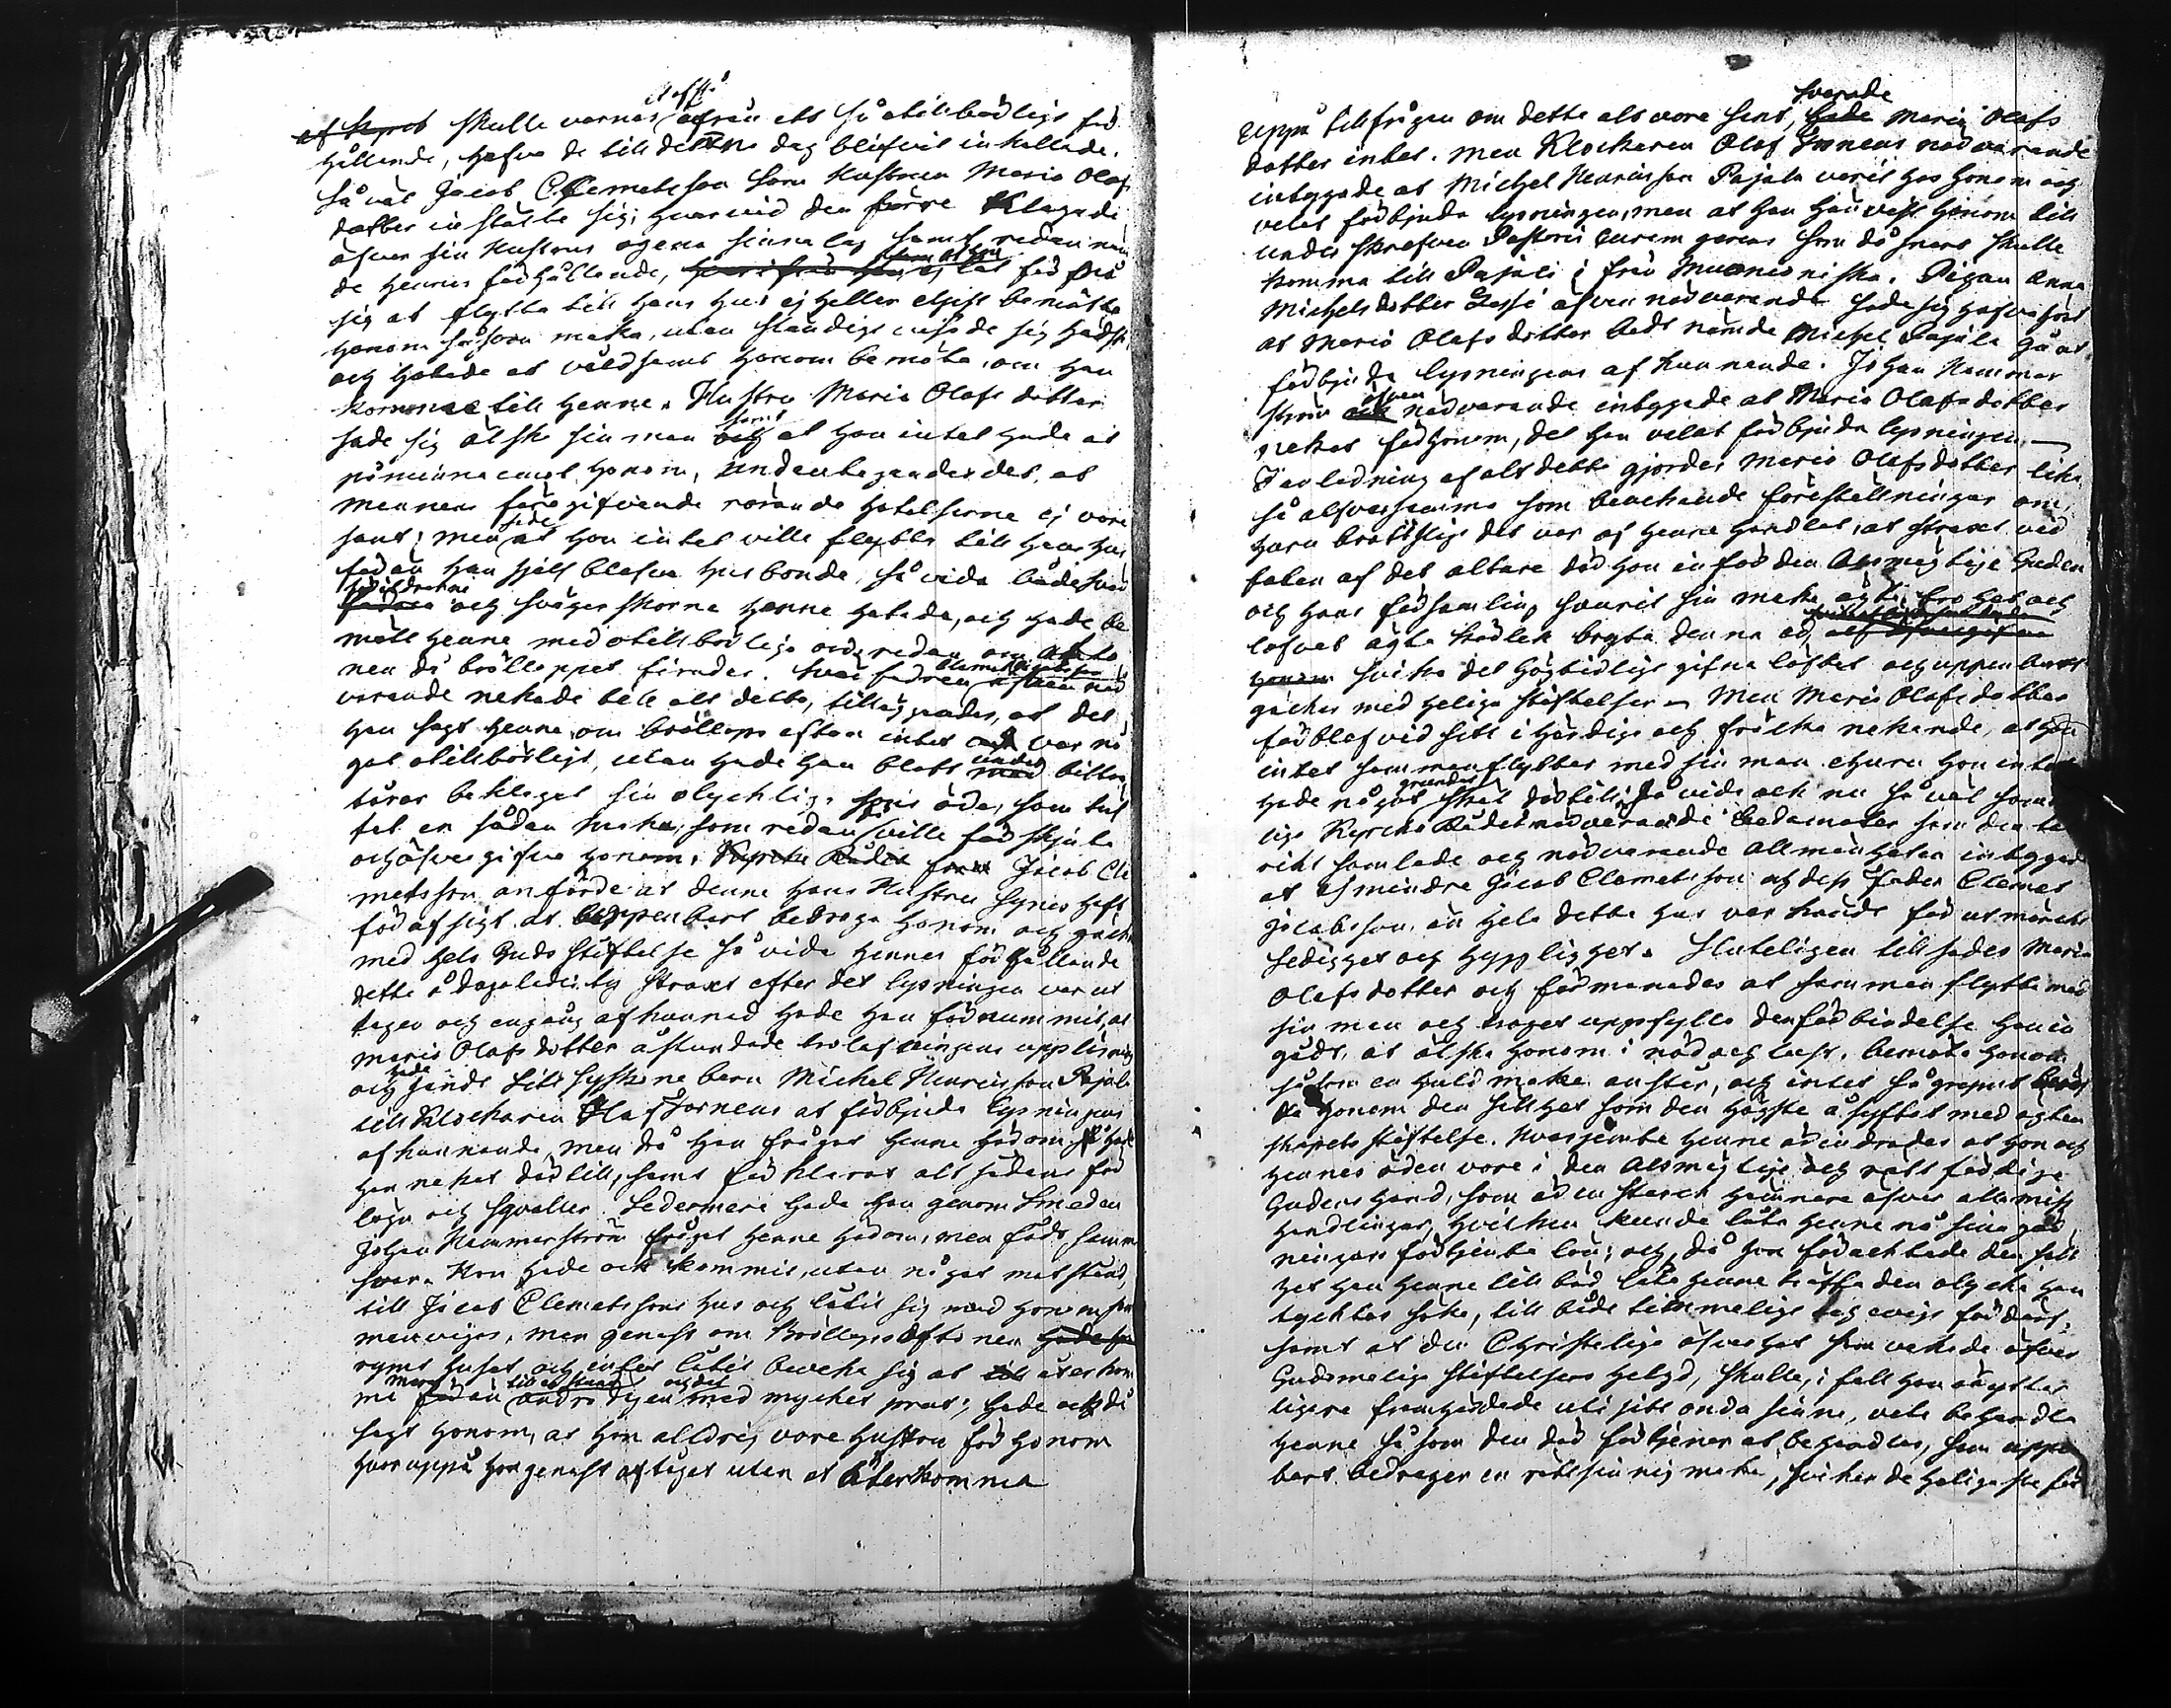 skulle varnas ifrån ets så otilbörligt för
hållande, hafva de till denne dag blifvit inkallade.
så väl Jacob Clemetsson som Hustrun Maria Olofs
dotter instälte sig; hvarvid den förre klagade
öfver sin Hustrus egena sinnelag samt redan nu
de hennes förhållande, som at hon ej lät för må
sig at flytta till hans hus ej heller eljest bemötte
honom såsom maka, utan ständigt
och hotade at våldsamt honom bemöta, om han
kommer till henne. Hustru Maria Olofs dotter
sade sig älska sin man samt at hon intet hade at
påminna emot honom, undantagandes det, at
mannens föregifvande rörande hotelserne ej vore
sant; men sade at hon intet ville flytta till hans hus
förän han sjelf blefve husbonde, så vida både svär
föräldrarne och svägerskorna henne hatade, och hade be
mött henne med otillbörliga ord redan om afto
nen då bröllopet firades. Svärfadren Clemet Jacobsson
varande nekade till alt detta, tilläggandes, at det
han sagt henne om bröllops afton intet var nå
got otillbörligt, utan hade han blott under bittra
tårar beklagat sin olyckliga sons öde, som tul
fat en sådan maka, som redan ville förskjuta
och öfvergifva honom. Jacob Cle
metsson anförde at denne hans Hustru synes haft
för afsigt at uppenbart bedraga honom och gäcka
med hela Guds stiftelse så vida hennes förhållande
detta å daga lade: ty straxt efter det lysningen var ut
tagen och en gång afkunnad hade han förnummit, at
Maria Olofs dotter åstundade trolofningens upplösning
och hade sändt sitt syskonebarn Michel Henricsson Pajala
till Klockaren Olof Forneus at förbjuda lysningens
afkunnande, men då han frågat henne härom
hon nekat därtill, samt förklarat alt sådant för
lögn och sqvaller. Sedermera hade han genom Smeden
Johan Hammarström frågat henne härom, men fått samma
svar. Hon hade ock kommit, utan något motstånd,
till Jacob Clemetssons hus och låtit sig med honom sam
manvigas, men genast om Bröllops aftonen
rymt huset och intet låtit beveka sig at återkom
ma förän andra dagen och det med mycket prut; hade ock då
sagt honom, at hon alldrig vore hustru för honom
hvaruppå hon genast aftåget utan at återkomma
Uppå tillfrågan om detta alt vore sant, svarade Maria Olofs
dotter intet. Men Klockaren Olof Forneus närvarande
intygade at Michel Henricsson Pajala varit hos honom och
velat förbjuda lysningen, men at han hänvist honom till
underskrefven Pastoris vicem gerens som då snart skulle
komma till Pajala ifrån Muonioniska. Pigan Anna
Michelsdotter äfven närvarande sade sig hafva hört
at Maria Olofs dotter bedt nämde Michel Pajala gå at
förbjuda lysningens afkunnande. Johan Hammar
ström äfven närvarande intygade at Maria Olofsdotter
nekat för honom, det hon velat förbjuda lysningen.
I anledning af alt detta gjordes Maria Olofsdotter lika
så alfversamma som bevekande föreställningar om,
huru brottsligt det var af henne handlat, at straxt vid
foten af det altare där hon inför den Alsmägtige Guden
och hans församling svurit sin maka ägta tro hat och
lofvat ägta kärlek bryta denna ed,
svika det högtidligt gifna löftet och uppenbart
gäckas med heliga stiftelser. Men Maria Olofs dotter
förblef vid sitt ihärdiga och fräcka nekande, at hon
intet samman flyttar med sin man ehuru hon intet
hade något grundat skäl därtill, så vida ock nu så väl samt
lige Kyrcko Rådet närvarande Ledamöter som den ta
rikt samlade och närvarande Allmänheten intygade
at ej mindre Jacob Clemetsson och dess fader Clemet
Jacobsson, än hela detta hus var kändt för utmärckt
sedighet och hygglighet. Sluteligen tillsades Maria
Olofs dotter och förmanades at samman flytta med
sin man och troget uppfylla den förbindelse hon in
gådt, at älska honom i nöd och lust, bemöta honom
såsom en huld maka anstår, och intet så grymt
da honom den sällhet som den högste åsyftat med ägten
skapets stiftelse. Hvarjemte henne erindrades at hon och
hennes öden vore i den Alsmägtige och rättfärdige
Gudens hand, som är en starck hämnare öfver alla miss
handlingar, hvilken kunde låta henne nå sina gär
ningars förtjenta lön; och, då hon föracktade den säll
het han henne till bud låta henne träffa den olycka hon
tycktes söka, till både timmeligt och evigt förderf,
samt at den Christeliga öfverhet som vakade öfver
Gudomeliga stiftelsers helgd, skulle, i fall hon än ytter
ligare framhärdade uti sitt onda sinne, veta behandla
henne så som den där förtjenar at behandlas, som uppen
bart bedrager en rättsinnig maka, sviker de heligaste för